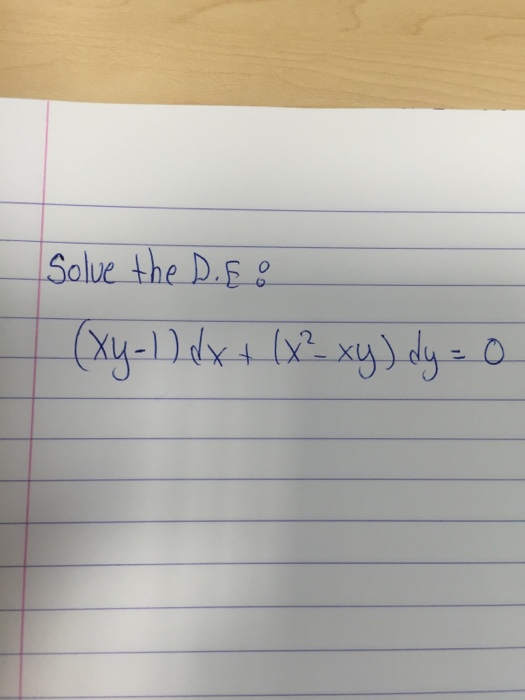 Solve the D.E :
(xy-1) dx + (x²- xy) dy = 0